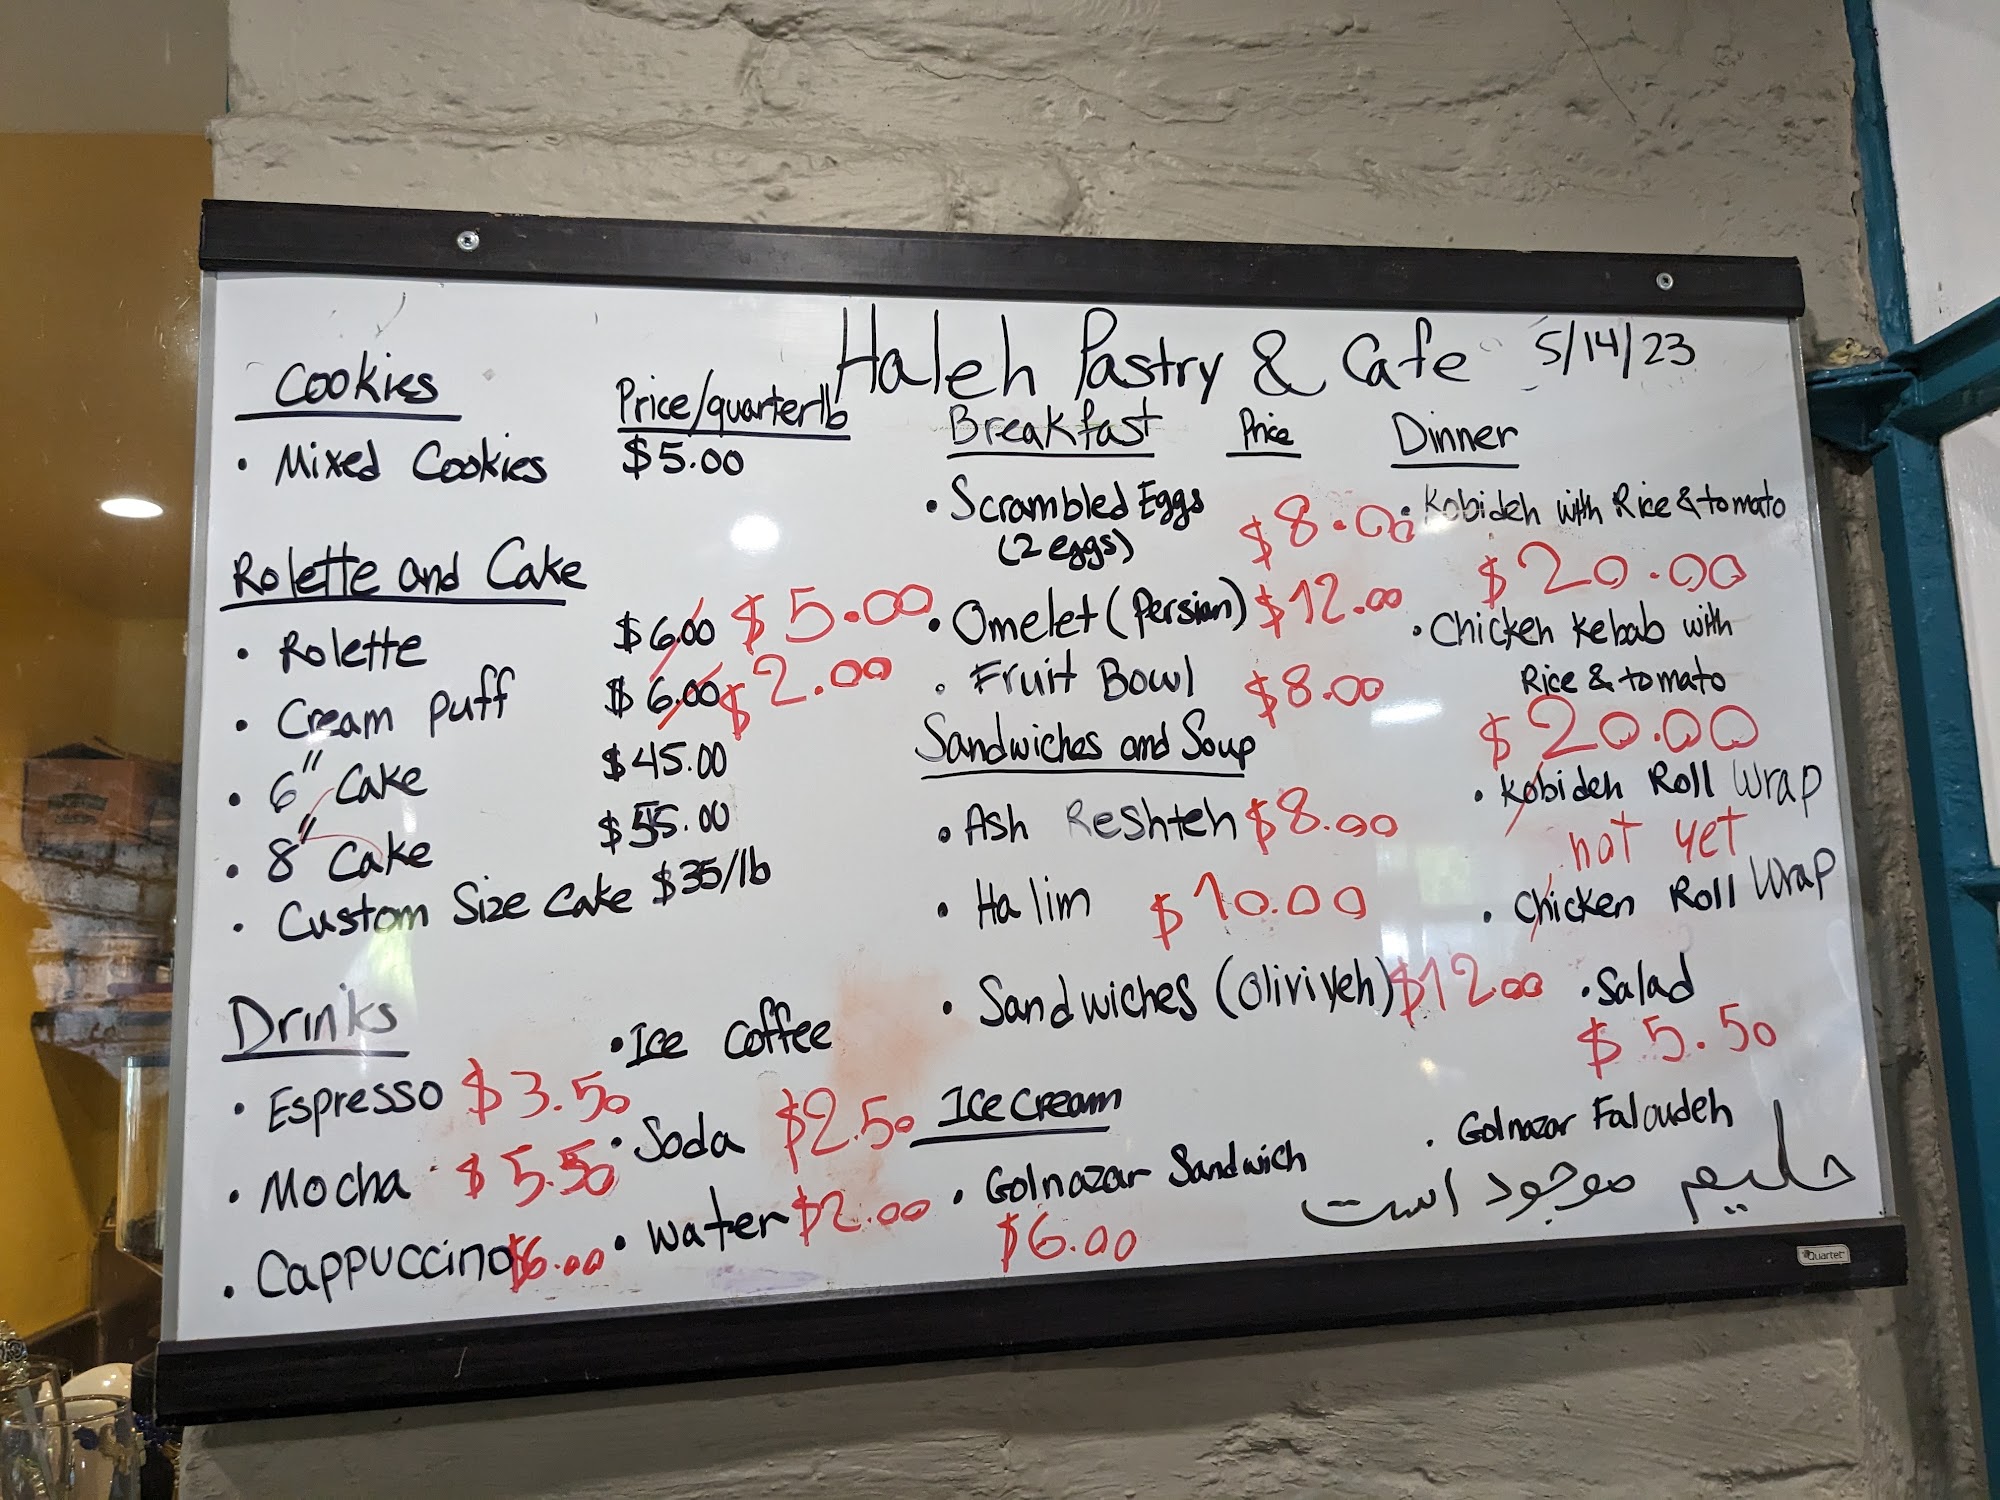 Haleh Pastry & Cafe 5/14/23
Cookies Price/quarter lb
• Mixed Cookies $5.00
Rolette and Cake
• Rolette $6.00 $5.00
• Cream puff $6.00 $2.00
• 6" Cake $45.00
• 8" Cake $55.00
• Custom Size Cake $35/lb
Drinks
• Espresso $3.50
• Mocha $5.50
• Cappuccino $6.00
• Ice Coffee
• Soda $2.50
• Water $2.00
Breakfast Price
• Scrambled Eggs $8.00
(2 eggs)
• Omelet (Persian) $12.00
• Fruit Bowl $8.00
Sandwiches and Soup
• Ash Reshteh $8.00
• Halim $10.00
• Sandwiches (Oliviyeh) $12.00
Ice Cream
• Golnazar Sandwich
$6.00
Dinner
• Kobideh with Rice & tomato
$20.00
• Chicken Kebab with
Rice & tomato
$20.00
• Kobideh Roll Wrap
not yet
• Chicken Roll Wrap
• Salad
$5.50
• Golnazar Faloudeh
حلیم موجود است
Quartet